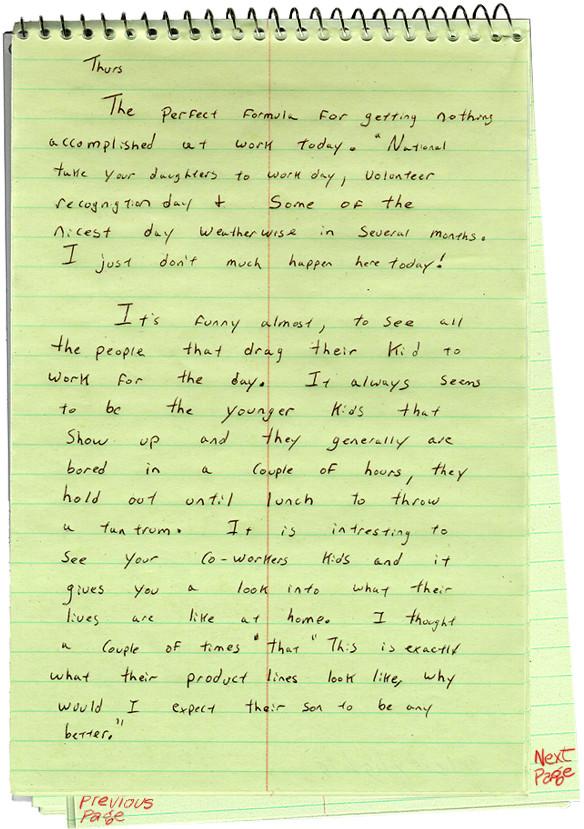 Thurs
The perfect formula for getting nothing
accomplished at work today. "National
take your daughters to work day, volunteer
recognigtion day & Some of the
nicest day weatherwise in several months.
I just don't much happen here today!
It's funny almost, to see all
the people that drag their Kid to
work for the day. It always seems
to be the younger Kids that
Show up and they generally are
bored in a couple of hours, they
hold out until lunch to throw
a tantrum. It is intresting to
see your co-workers Kids and it
gives you a look into what their
lives are like at home. I thought
a couple of times "that "This is exactly
what their product lines look like, why
would I expect their son to be any
better."
Next
Page
Previous
Page